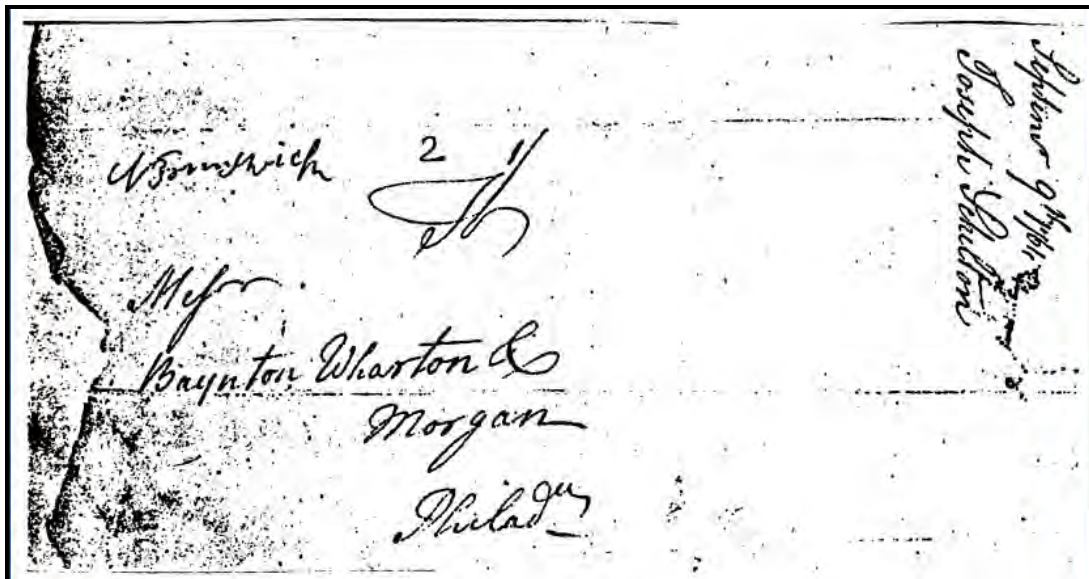 NBrunswich 2
Messrs.
Baynton Wharton &
Morgan
Philada
Septemr 9th
Joseph Skelton